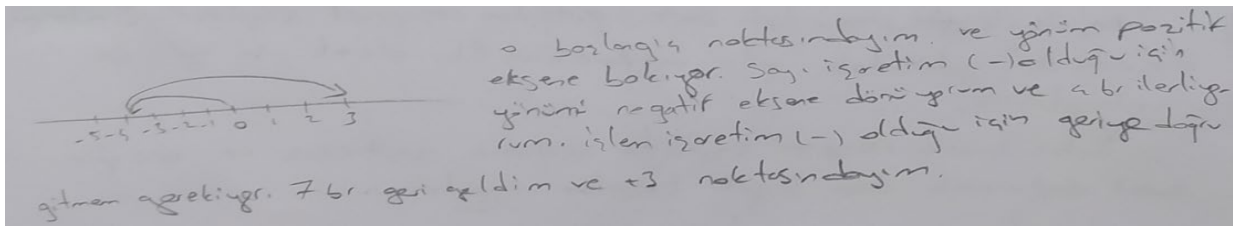 0 başlangıç noktasındayım. ve yönüm pozitif
eksene bakıyor. Sayı işaretim (-) olduğu için
yönümü negatif eksene dönüyorum ve 4 br ilerliyo-
rum. işlem işaretim (-) olduğu için geriye doğru
-5 -4 -3 -2 -1 0 1 2 3
gitmem gerekiyor. 7 br geri geldim ve +3 noktasındayım.